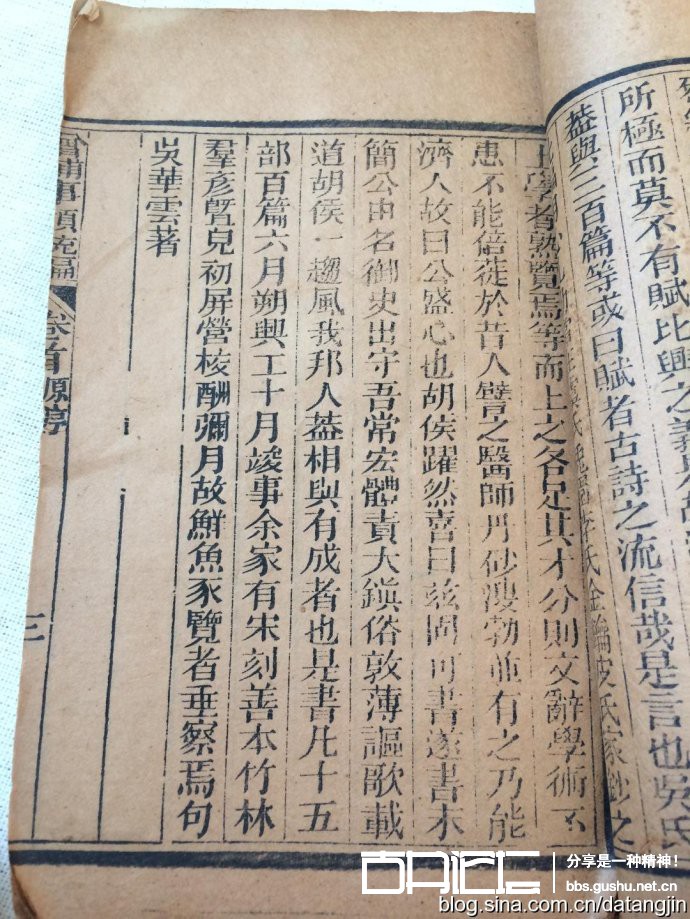 所極而莫不有賦比興之義
蓋與三百篇等或曰賦者古詩之流信哉是言也吳氏
李氏金 皮氏家鈔之
上學者熟覽焉等而上之各足其才分則文辭學術不
患不能倍徒於昔人譬之醫師丹砂溲勃並有之乃能
濟人故曰公盛心也胡侯躍然喜曰兹固可書遂書末
簡公由名御史出守吾常宏體責大鎮俗敦薄謳歌載
道胡侯一趨風我邦人蓋相與有成者也是書凡十五
部百篇六月朔興工十月竣事余家有宋刻善本竹林
羣彥曁兒初屏營核酬彌月故鮮魚豕覽者垂察焉句
吳華雲著
事類 卷首 原序
三
DARTE
分享是一种精神!
bbs.gushu.net.cn
blog.sina.com.cn/datangjin